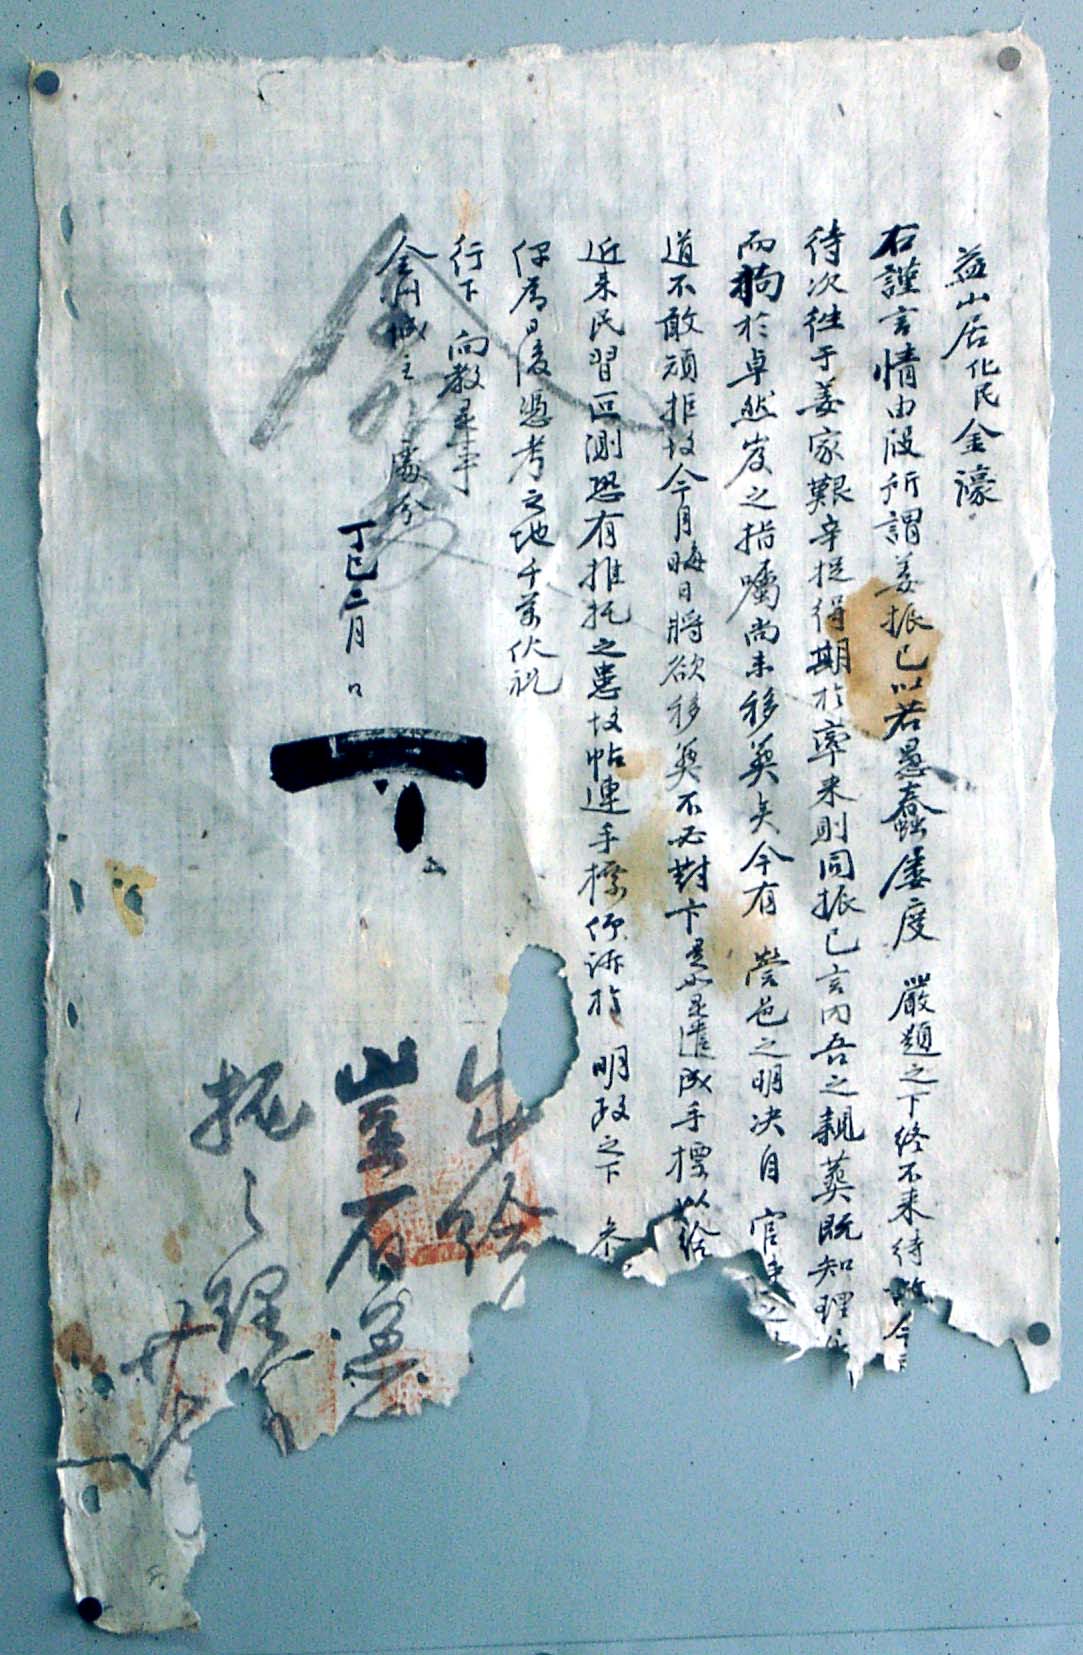 益山居化民金濠
右謹言情由段所謂姜振已以若愚蠢屢度 嚴題之下終不來待 今
待次徃于姜家艱辛捉得期於率來則同振已言內吾之親葬旣知理
而拘於卓然岌之指囑尚未移葬矣今有 營邑之明決自 官
道不敢頑拒故今月晦日將欲移葬不必對卞是如是遣成手標以給
近來民習叵測恐有推托之患故帖連手標仰訴於 明政之下 参
俾爲日後憑考之地千萬伏祝
行下 向敎是事
全州城主 處分
丁巳二月 日
成給
豈有策
托之理
廿七